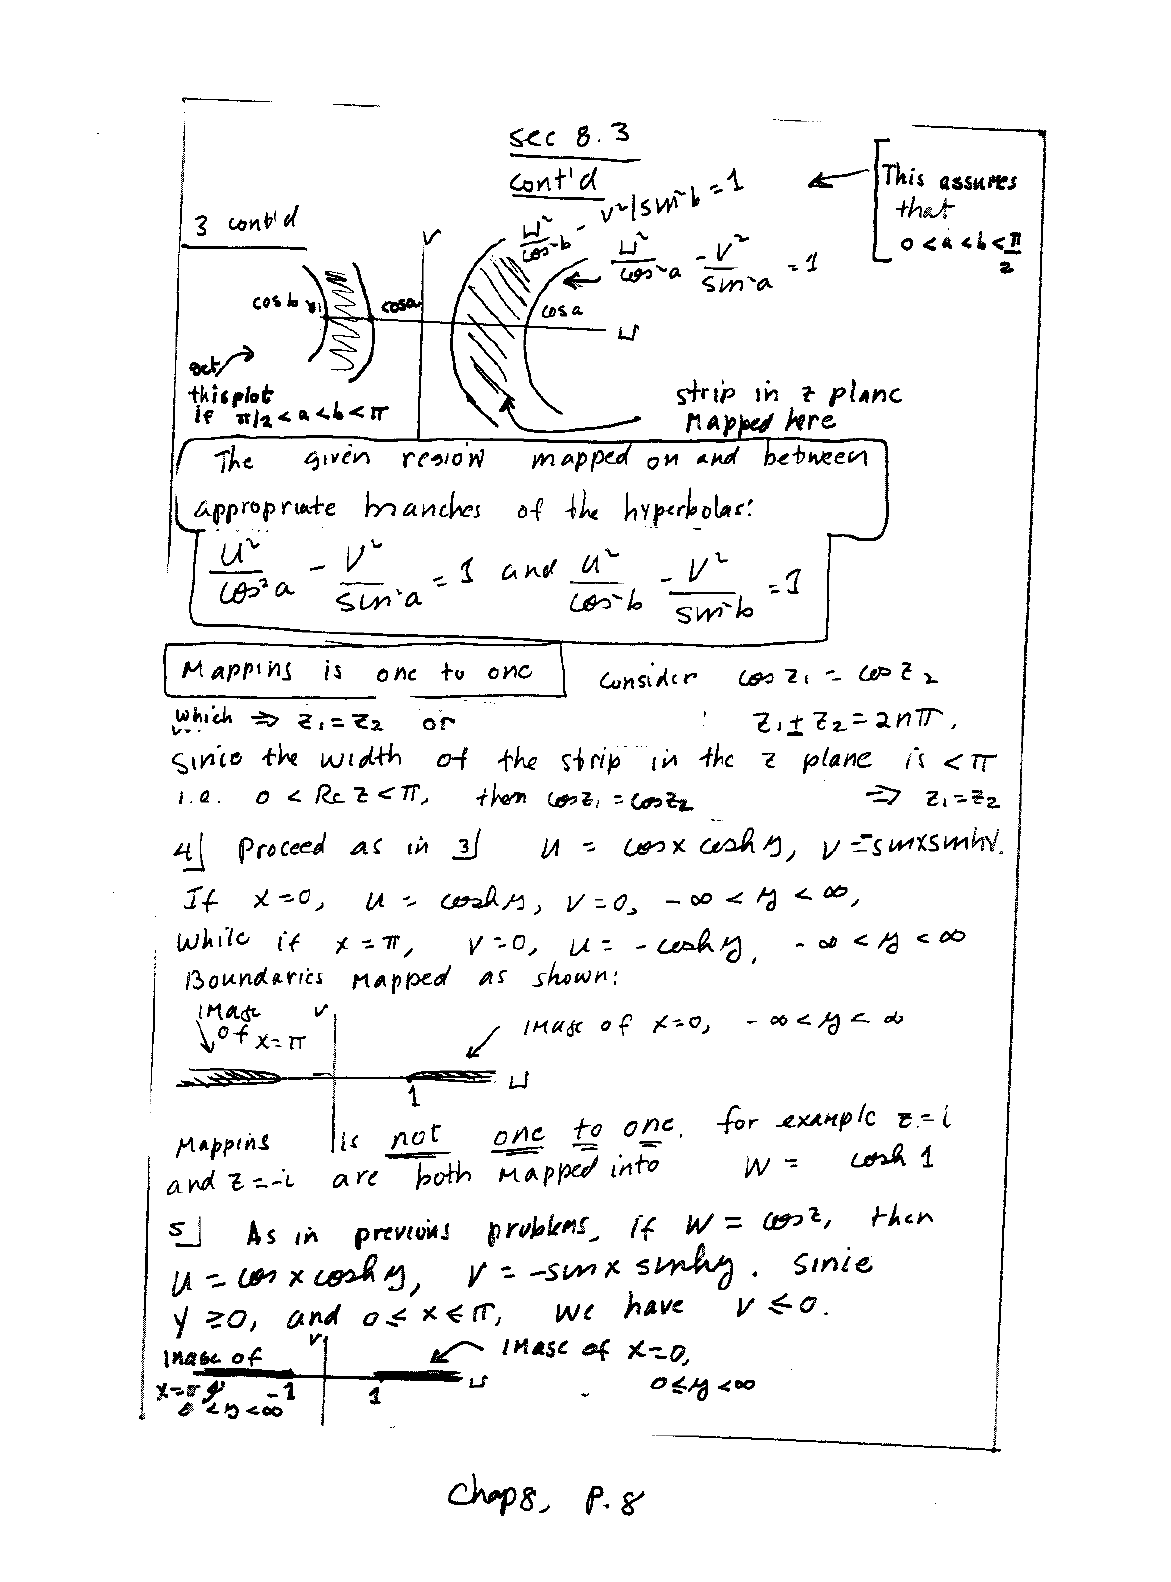 sec 8.3
cont'd
3 cont'd
This assumes
that
0 < a < b < π/2
u²/cos²b - v²/sin²b = 1
u²/cos²a - v²/sin²a = 1
v
cos b
cos a
cos a
u
get
this plot
if π/2 < a < b < π
strip in z plane
mapped here
The given region mapped on and between
appropriate branches of the hyperbolas:
u²/cos²a - v²/sin²a = 1 and u²/cos²b - v²/sin²b = 1
Mapping is one to one Consider cos z₁ = cos z₂
which ⇒ z₁ = z₂ or z₁ ± z₂ = 2nπ.
Since the width of the strip in the z plane is < π
i.e. 0 < Re z < π, then cos z₁ = cos z₂ ⇒ z₁ = z₂
4] Proceed as in 3] u = cos x cosh y, v = sin x sinh y.
If x = 0, u = cosh y, v = 0, -∞ < y < ∞,
While if x = π, v = 0, u = - cosh y, -∞ < y < ∞
Boundaries mapped as shown:
image
of x = π
v
image of x = 0, -∞ < y < ∞
1
u
Mapping is not one to one. for example z = i
and z = -i are both mapped into w = cosh 1
5] As in previous problems, if w = cos z, then
u = cos x cosh y, v = -sin x sinh y. Since
y ≥ 0, and 0 ≤ x ≤ π, we have v ≤ 0.
image of
x = π
0 < y < ∞
v
-1
1
u
image of x = 0,
0 ≤ y < ∞
Chap 8, P. 8